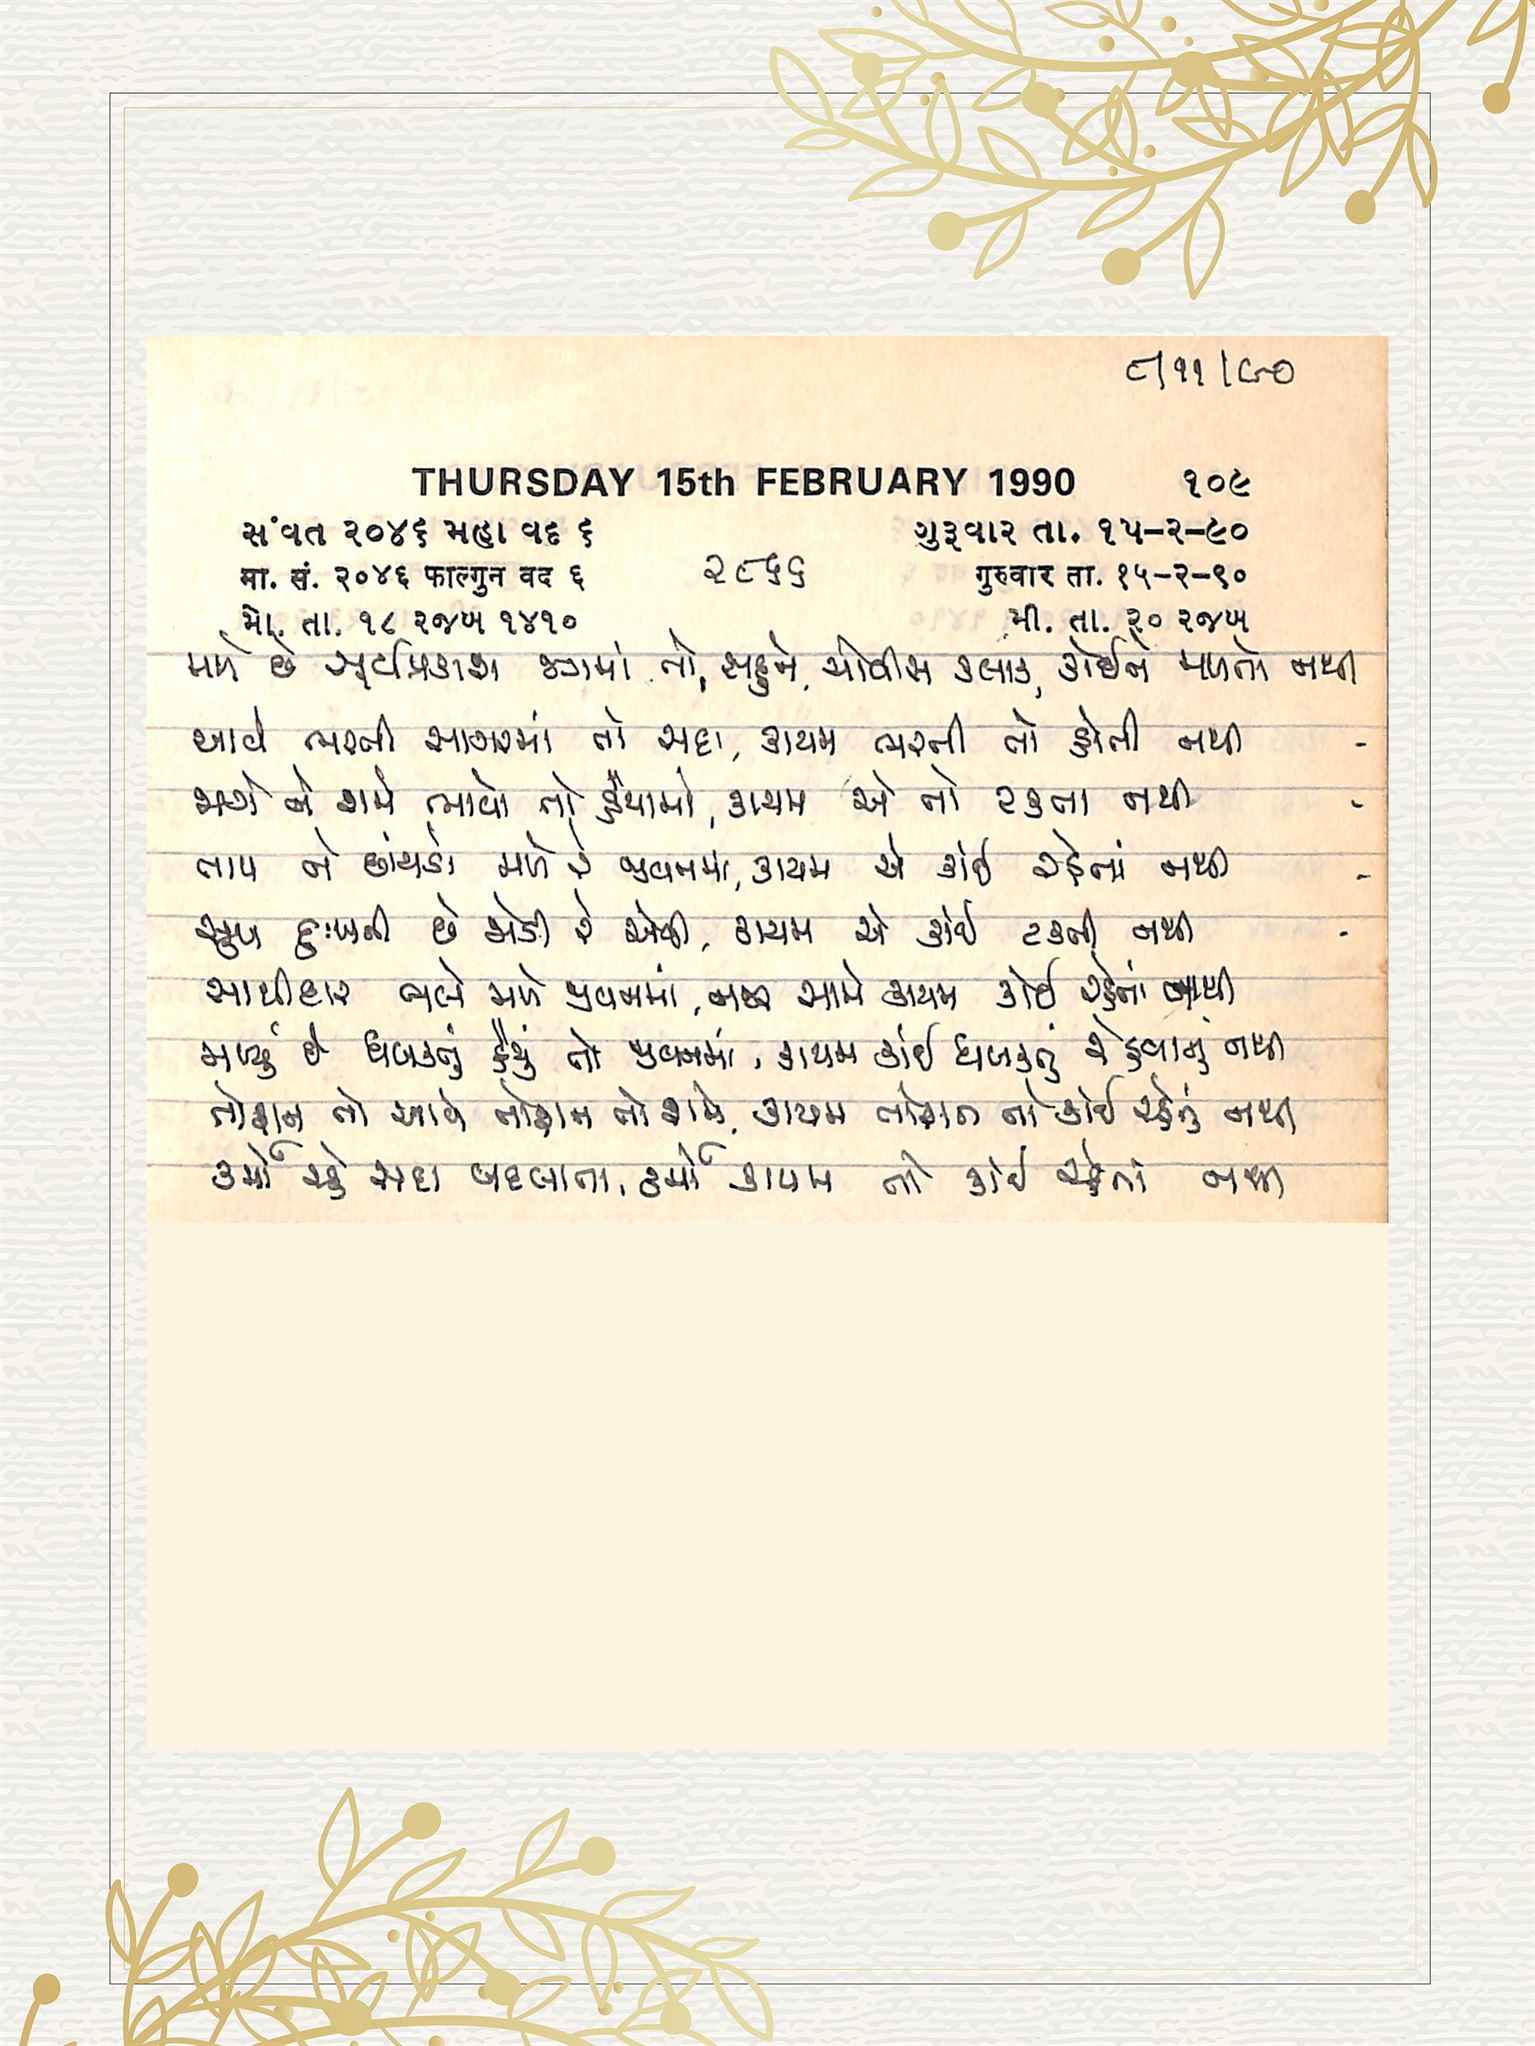 ૮/૧૧/૯૦
THURSDAY 15th FEBRUARY 1990 ૧૦૯
સંવત ૨૦૪૬ મહા વદ ૬ ગુરૂવાર તા. ૧૫-૨-૯૦
૨૮૬૬
मा. सं. २०४६ फाल्गुन वद ६ गुरुवार ता. १५-२-९०
મો. તા. ૧૮ રજબ ૧૪૧૦ મી. તા. ૨૦ રજબ
મળે છે સૂર્યપ્રકાશ જગમાં તો, સહુને, ચોવીસ કલાક, કોઈને મળતો નથી
આવે ભરતી સાગરમાં તો સદા, કાયમ ભરતી તો હોતી નથી -
જાગે ને શમે ભાવો તો હૈયામાં, કાયમ એ તો ટકતા નથી -
તાપ ને છાંયડો મળે રે જીવનમાં, કાયમ એ કાંઈ રહેતાં નથી -
સુખ દુઃખની છે જોડી રે એવી, કાયમ એ કાંઈ ટકતી નથી -
સાથીદાર ભલે મળે જીવનમાં, નજર સામે કાયમ કોઈ રહેતાં નથી
મળ્યું છે ધબકતું હૈયું તો જીવનમાં, કાયમ કાંઈ ધબકતું રહેવાનું નથી
તોફાન તો આવે તોફાન તો શમે, કાયમ તોફાન તો કાંઈ રહેતું નથી
કર્મો રહે સદા બદલાતા, કર્મો કાયમ તો કાંઈ રહેતાં નથી